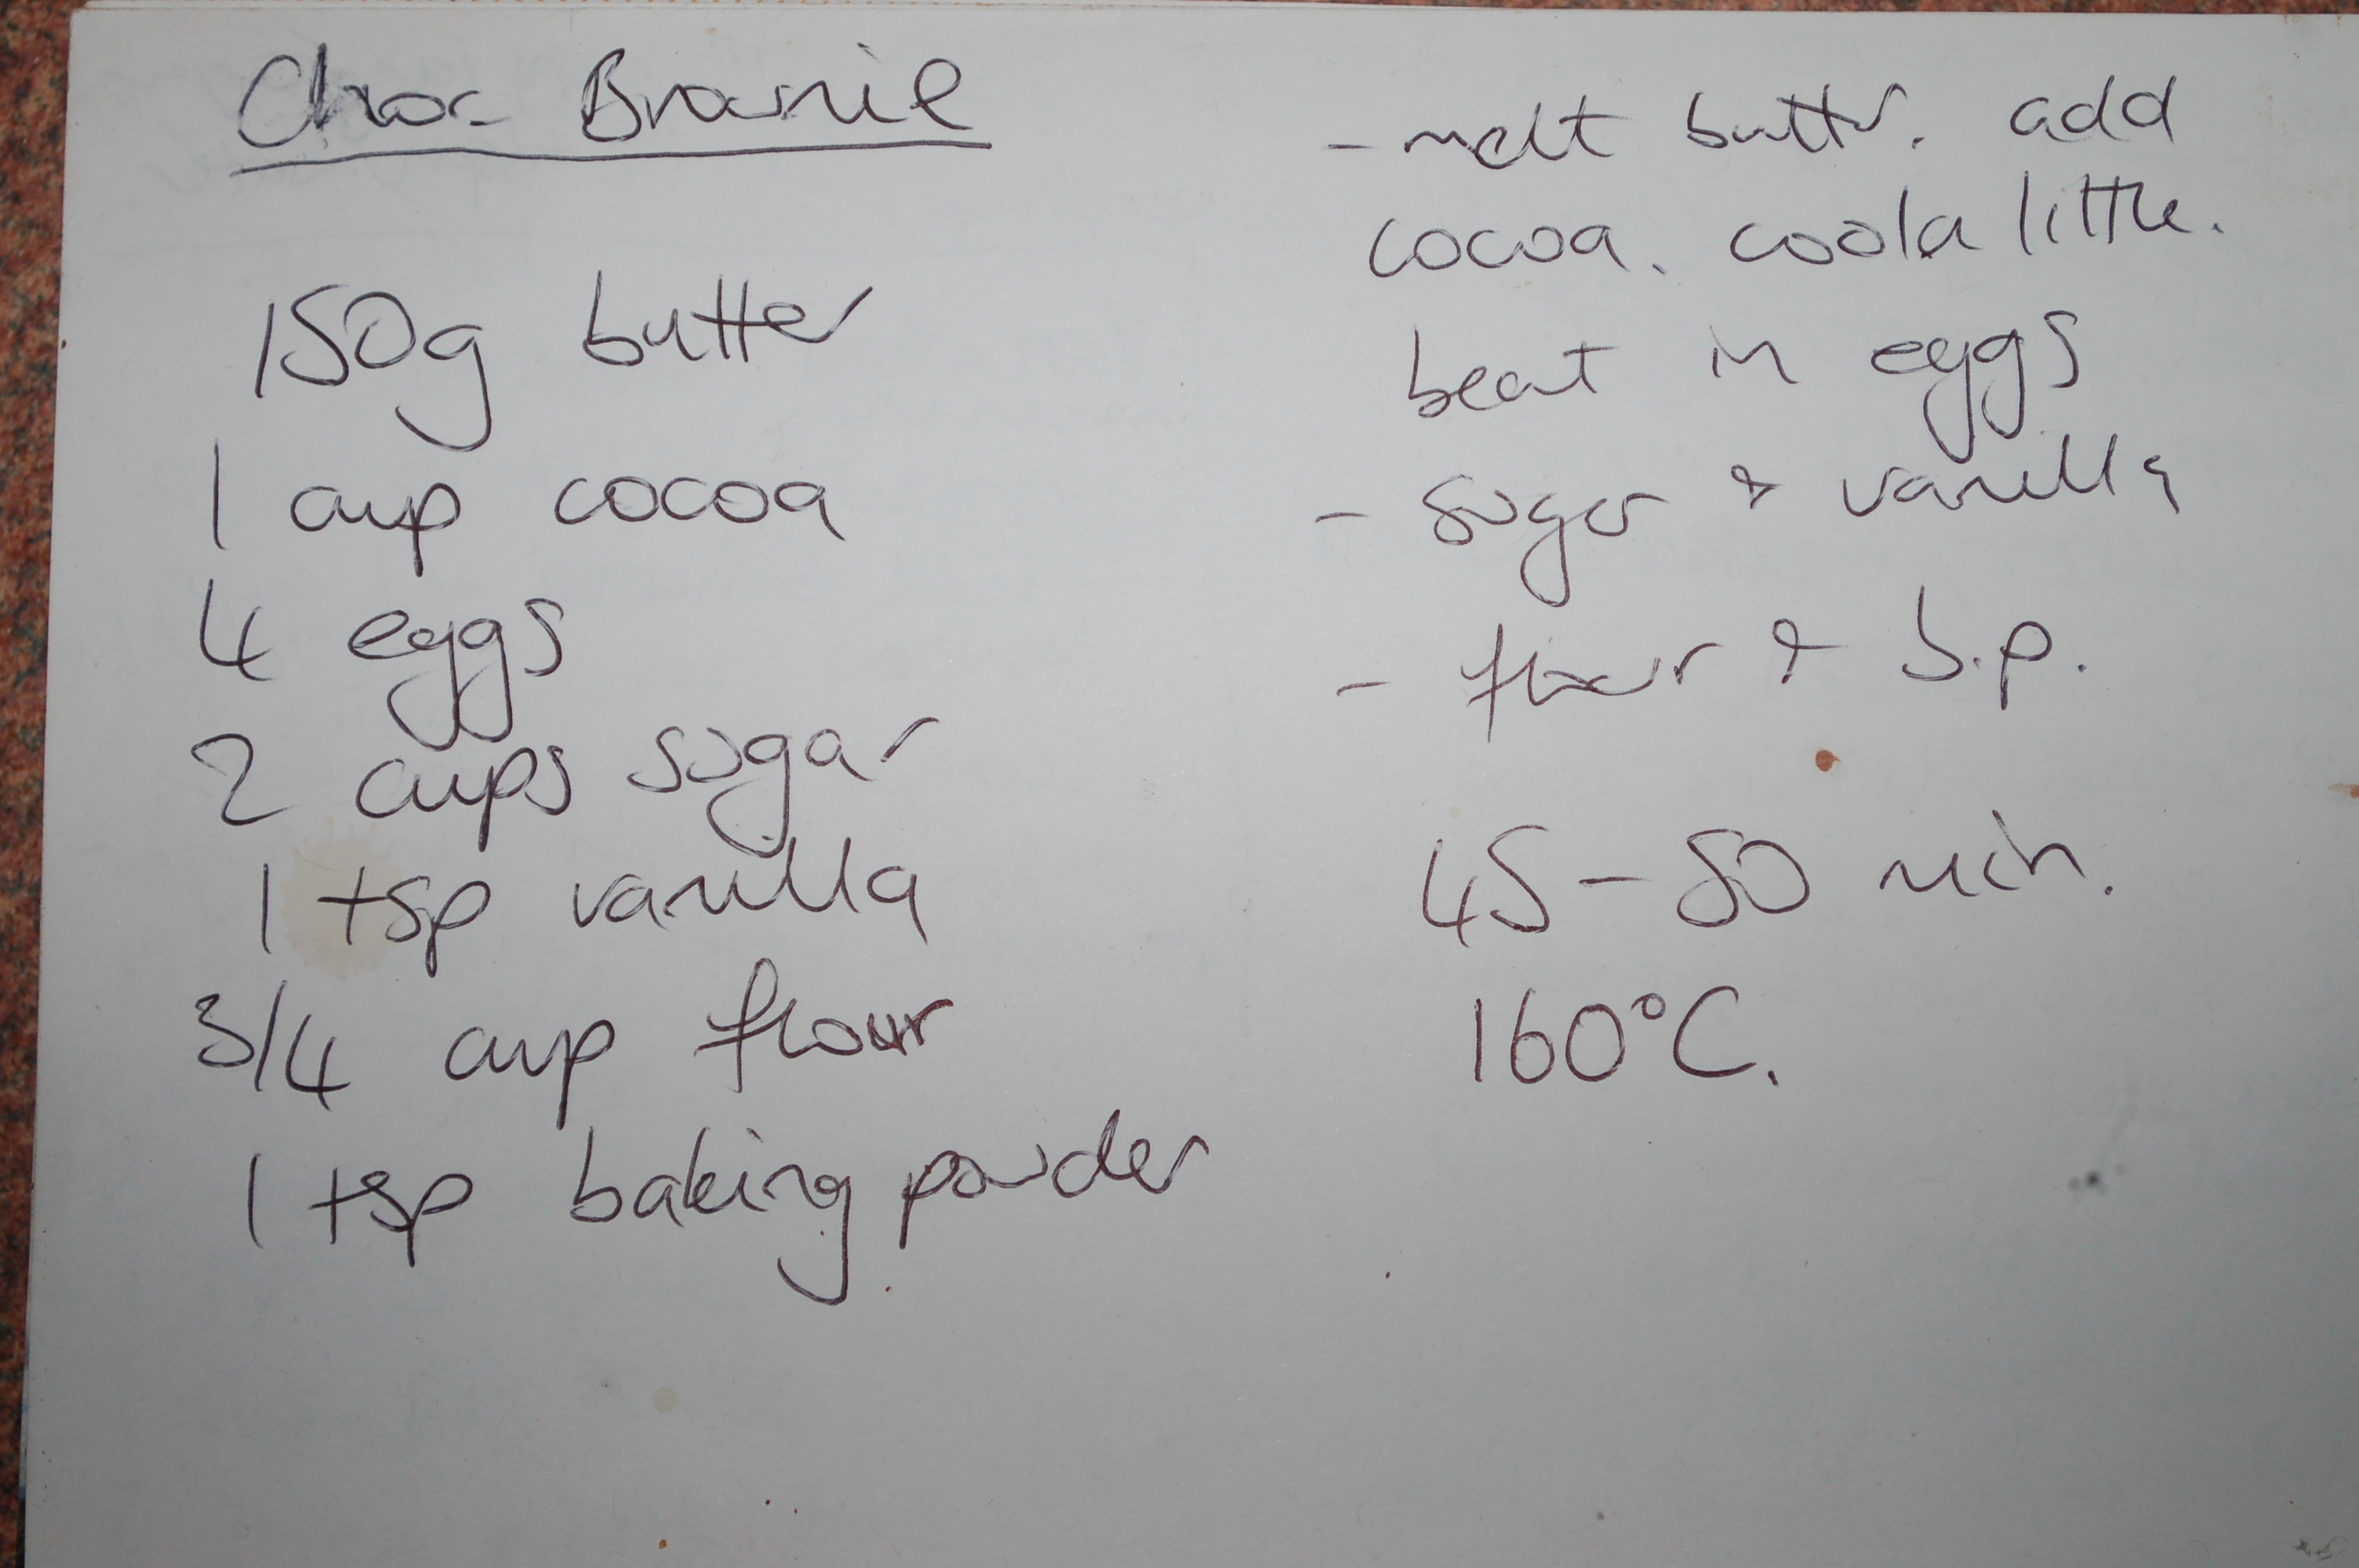 Choc Brownie
150g butter
1 cup cocoa
4 eggs
2 cups sugar
1 tsp vanilla
3/4 cup flour
1 tsp baking powder
- melt butter. add
cocoa. cool a little.
beat in eggs
- sugar & vanilla
- flour & b.p.
45-50 min.
160°C.